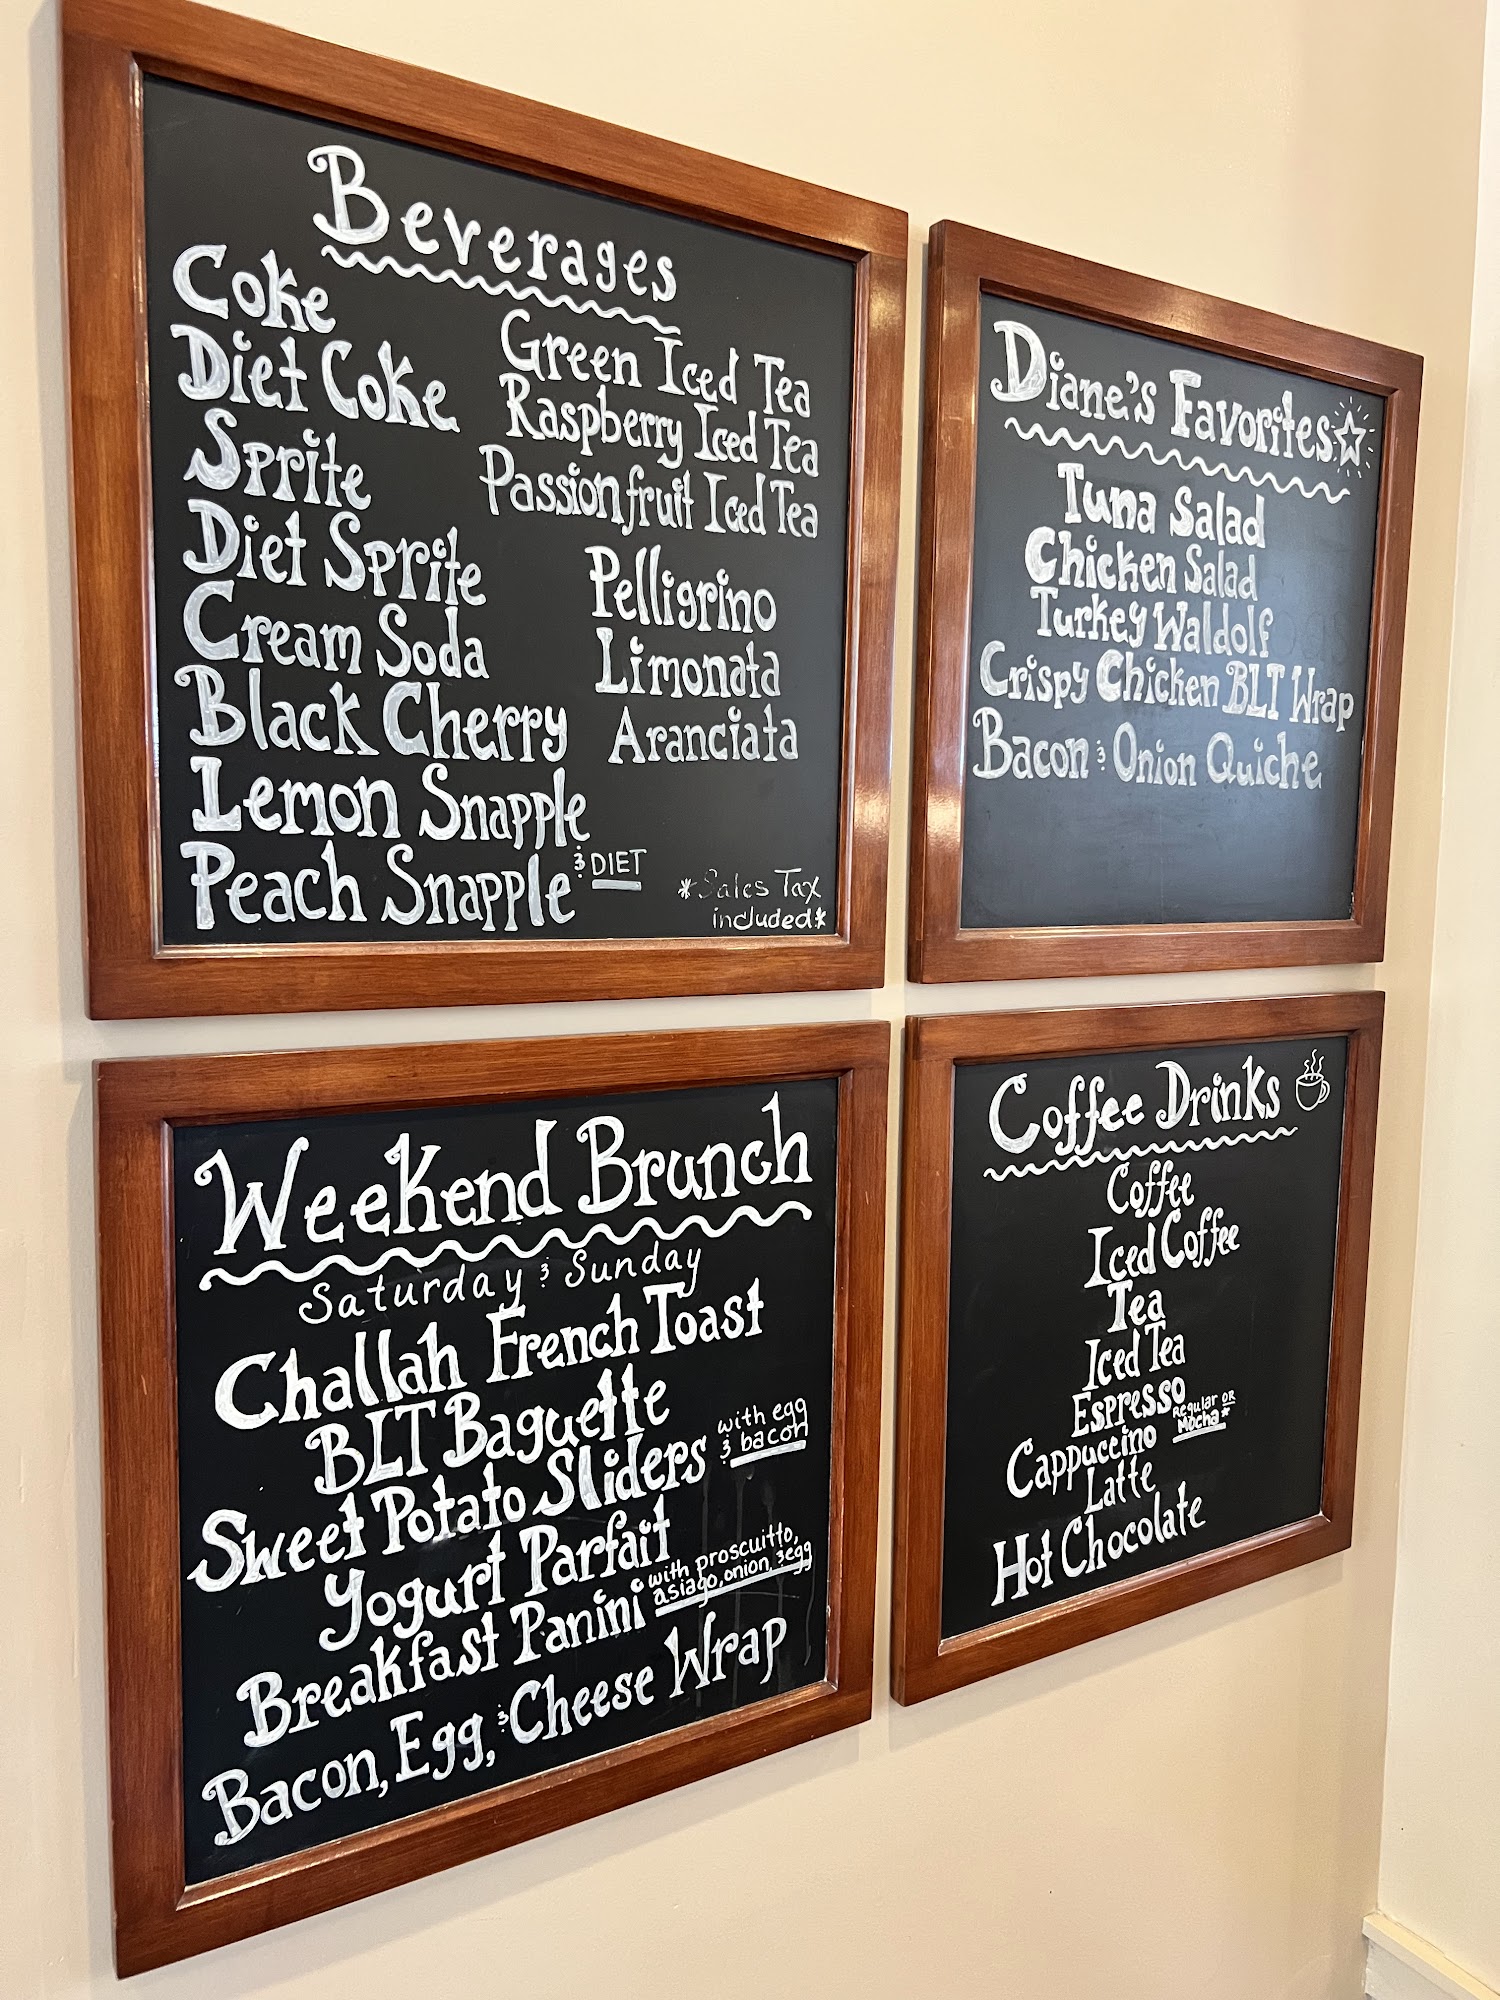 Beverages
Coke
Diet Coke
Sprite
Diet Sprite
Cream Soda
Black Cherry
Lemon Snapple
Peach Snapple & DIET
Green Iced Tea
Raspberry Iced Tea
Passionfruit Iced Tea
Pelligrino
Limonata
Aranciata
*Sales Tax
included*
Diane's Favorites
Tuna Salad
Chicken Salad
Turkey Waldolf
Crispy Chicken BLT Wrap
Bacon & Onion Quiche
Weekend Brunch
Saturday & Sunday
Challah French Toast
BLT Baguette
Sweet Potato Sliders
with egg
& bacon
Yogurt Parfait
Breakfast Panini
with proscuitto,
asiago, onion, & egg
Bacon, Egg, & Cheese Wrap
Coffee Drinks
Coffee
Iced Coffee
Tea
Iced Tea
Espresso
Regular OR
Mocha*
Cappuccino
Latte
Hot Chocolate